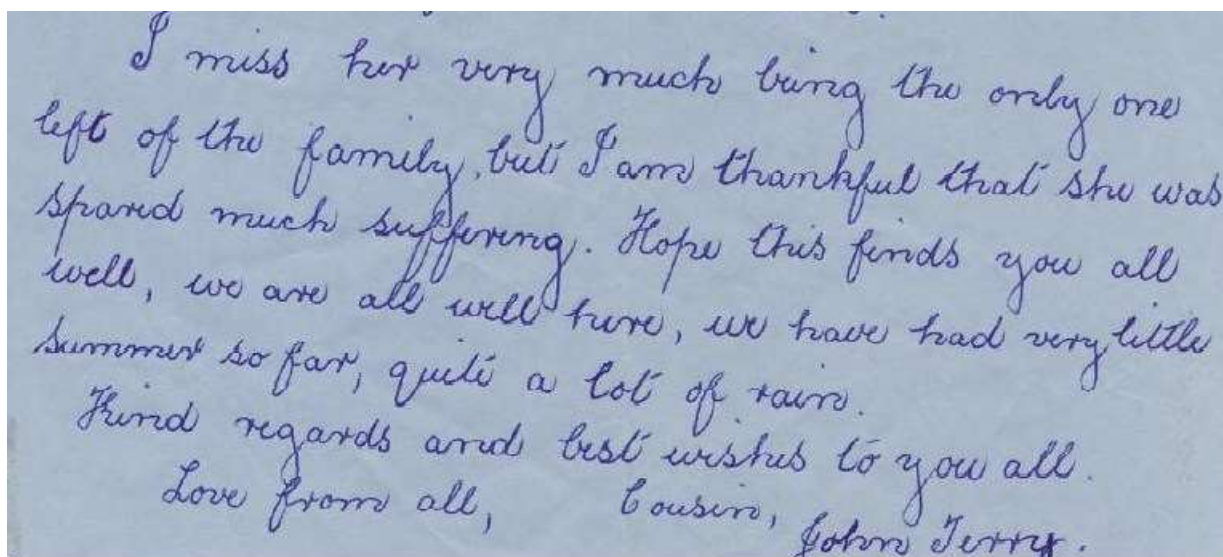 I miss her very much being the only one
left of the family, but I am thankful that she was
spared much suffering. Hope this finds you all
well, we are all well here, we have had very little
summer so far, quite a lot of rain.
Kind regards and best wishes to you all.
Love from all, Cousin,
John Terry.